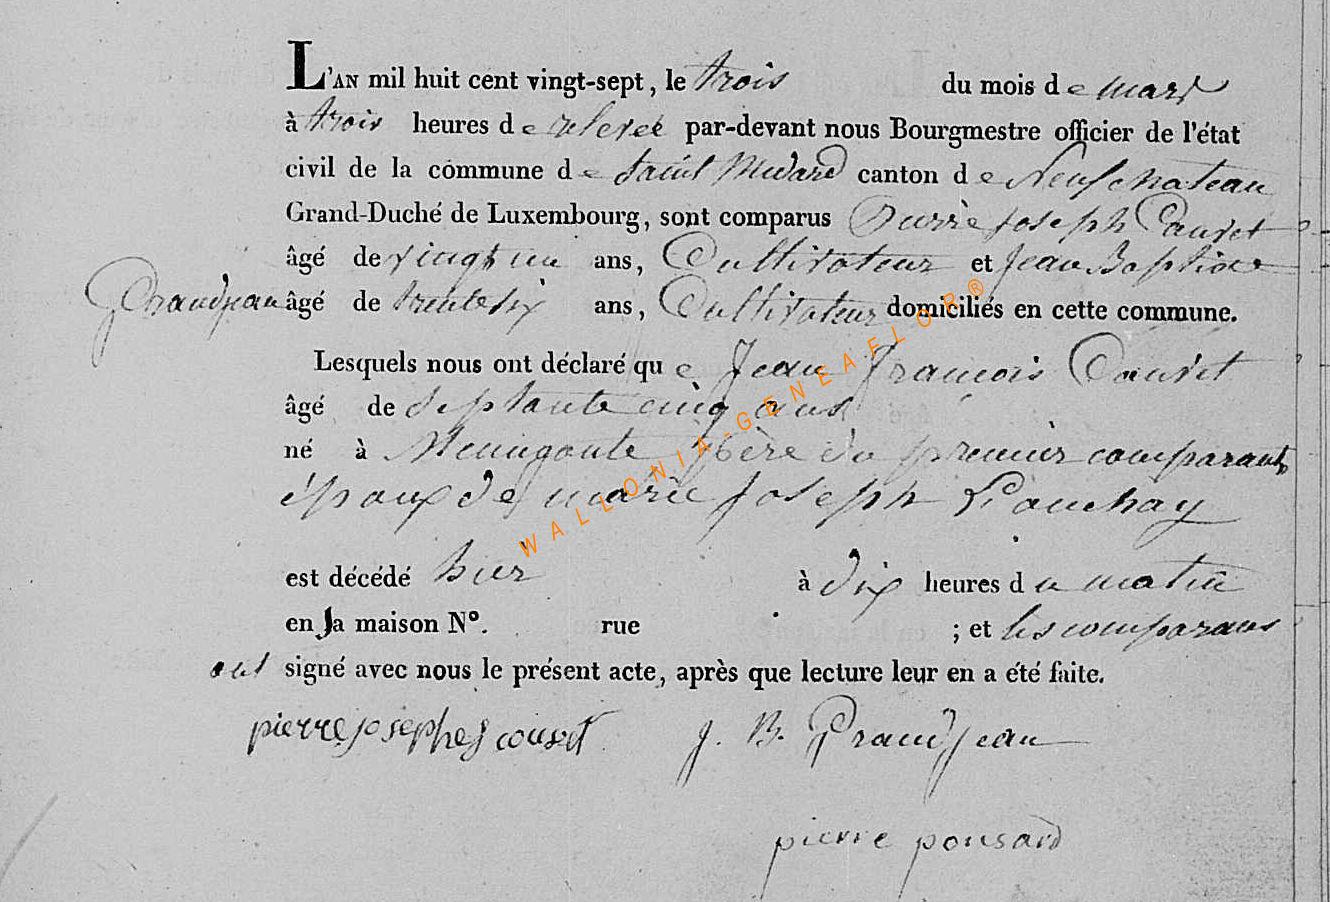 L'AN mil huit cent vingt-sept, le trois du mois de mars
à trois heures de relevée par-devant nous Bourgmestre officier de l'état
civil de la commune de Saint Medard canton de Neufchateau
Grand-Duché de Luxembourg, sont comparus Pierre Joseph
âgé de vingt un ans, Cultivateur et Jean Baptiste
Grandjean âgé de trente six ans, Cultivateur domiciliés en cette commune.
Lesquels nous ont déclaré que Jean François
âgé de septante cinq ans
né à père du premier comparant
époux de marie joseph
est décédé hier à dix heures du matin
en sa maison N°. rue ; et les comparans
ont signé avec nous le présent acte, après que lecture leur en a été faite.
pierre josephe J. B. Grandjean
pierre ponsard
WALLONIA-GENEAFLOR®